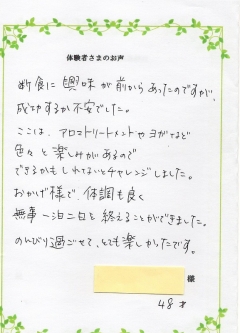 体験者さまのお声
断食に興味が前からあったのですが、
成功するか不安でした。
ここは、アロマトリートメントやヨガなど
色々と楽しみがあるので
できるかもしれないとチャレンジしました。
おかげ様で、体調も良く
無事一泊二日を終えることができました。
のんびり過ごせて、とても楽しかったです。
様
48才